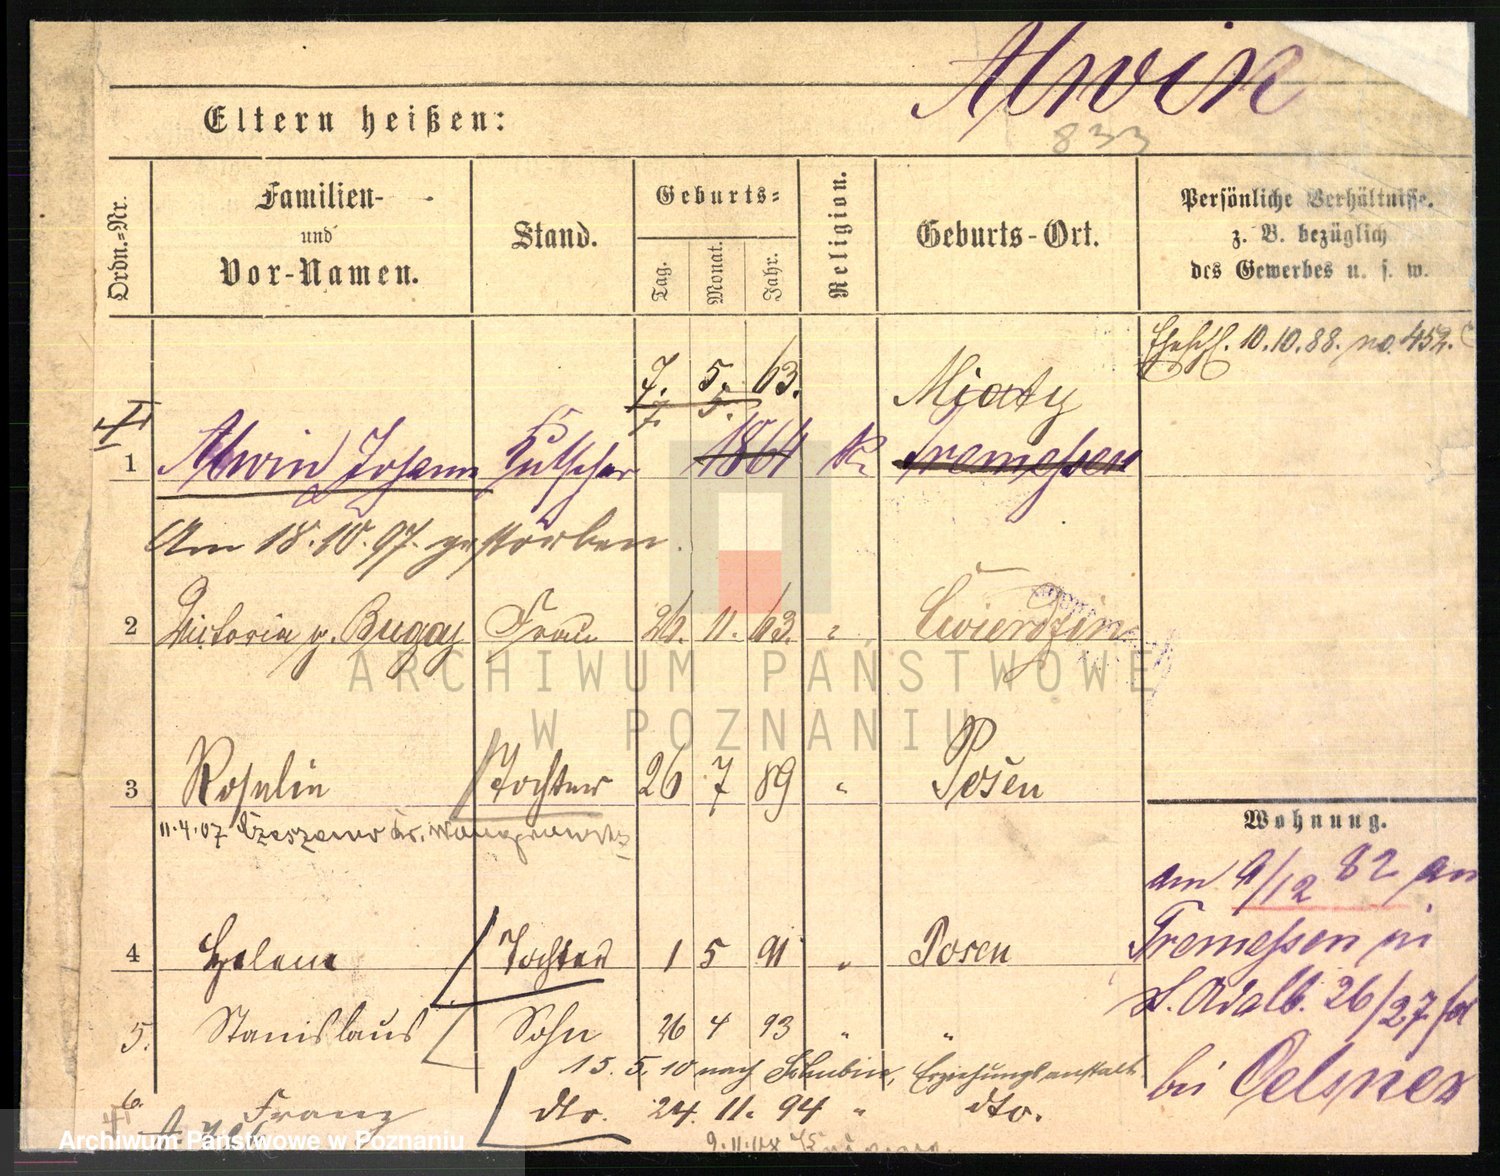 Alwin
833
Eltern heißen:
Ordn.-Nr.
Familien-
und
Vor-Namen.
Stand.
Geburts-
Tag. Monat. Jahr.
Religion.
Geburts-Ort.
Persönliche Verhältnisse.
z. B. bezüglich
des Gewerbes u. s. w.
10.10.88. no. 452.
7. 5. 63.
7. 5.
1 Alwin Johann Kutscher 1864 K. Tremessen
Am 18.10.97. gestorben.
2 Victoria g. Bugay Frau 26. 11. 63. " Cwierdzin
3 Rosalie Tochter 26 7 89 " Posen
11.4.07
4 Helene Tochter 1 5 91 " Posen
5. Stanislaus Sohn 26 4 93 " "
15.5.10 nach Schubin, Erziehungsanstalt
6. Franz dto. 24. 11. 94 " dto.
Wohnung.
am 9/12 82 an
Tremessen in
St. Adalb. 26/27
bei Oelsner
ARCHIWUM PAŃSTWOWE
W POZNANIU
Archiwum Państwowe w Poznaniu